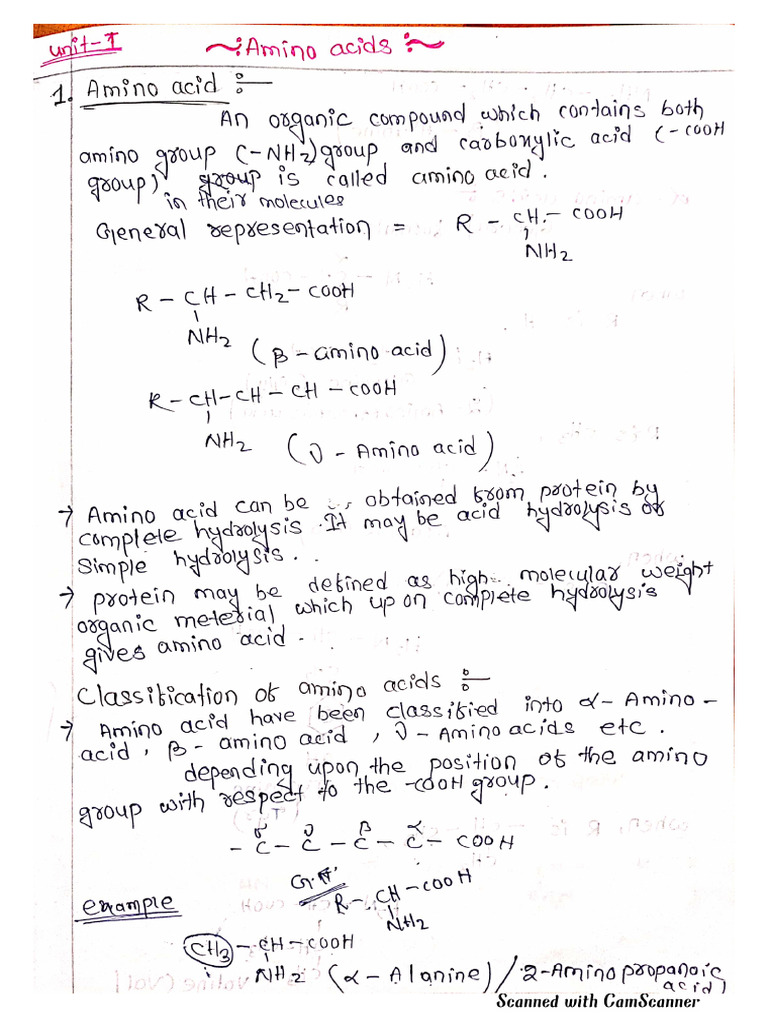 Unit-I
~: Amino acids :~
1. Amino acid :-
An organic compound which contains both
amino group (-NH2) group and carboxylic acid (-COOH
group) group is called amino acid.
in their molecules
General representation = R - CH - COOH
NH2
R - CH - CH2 - COOH
NH2
(β - amino acid)
R - CH - CH - CH - COOH
NH2
(γ - Amino acid)
→ Amino acid can be obtained from protein by
complete hydrolysis. It may be acid hydrolysis or
Simple hydrolysis.
→ protein may be defined as high molecular weight
organic meterial which upon complete hydrolysis
gives amino acid.
Classification of amino acids :-
→ Amino acid have been classified into α - Amino -
acid, β - amino acid, γ - Amino acids etc.
depending upon the position of the amino
group with respect to the -COOH group.
δ γ β α
- C - C - C - C - COOH
example
R - CH - COOH
NH2
CH3 - CH - COOH
NH2 (α - Alanine) / 2-Aminopropanoic
acid)
Scanned with CamScanner